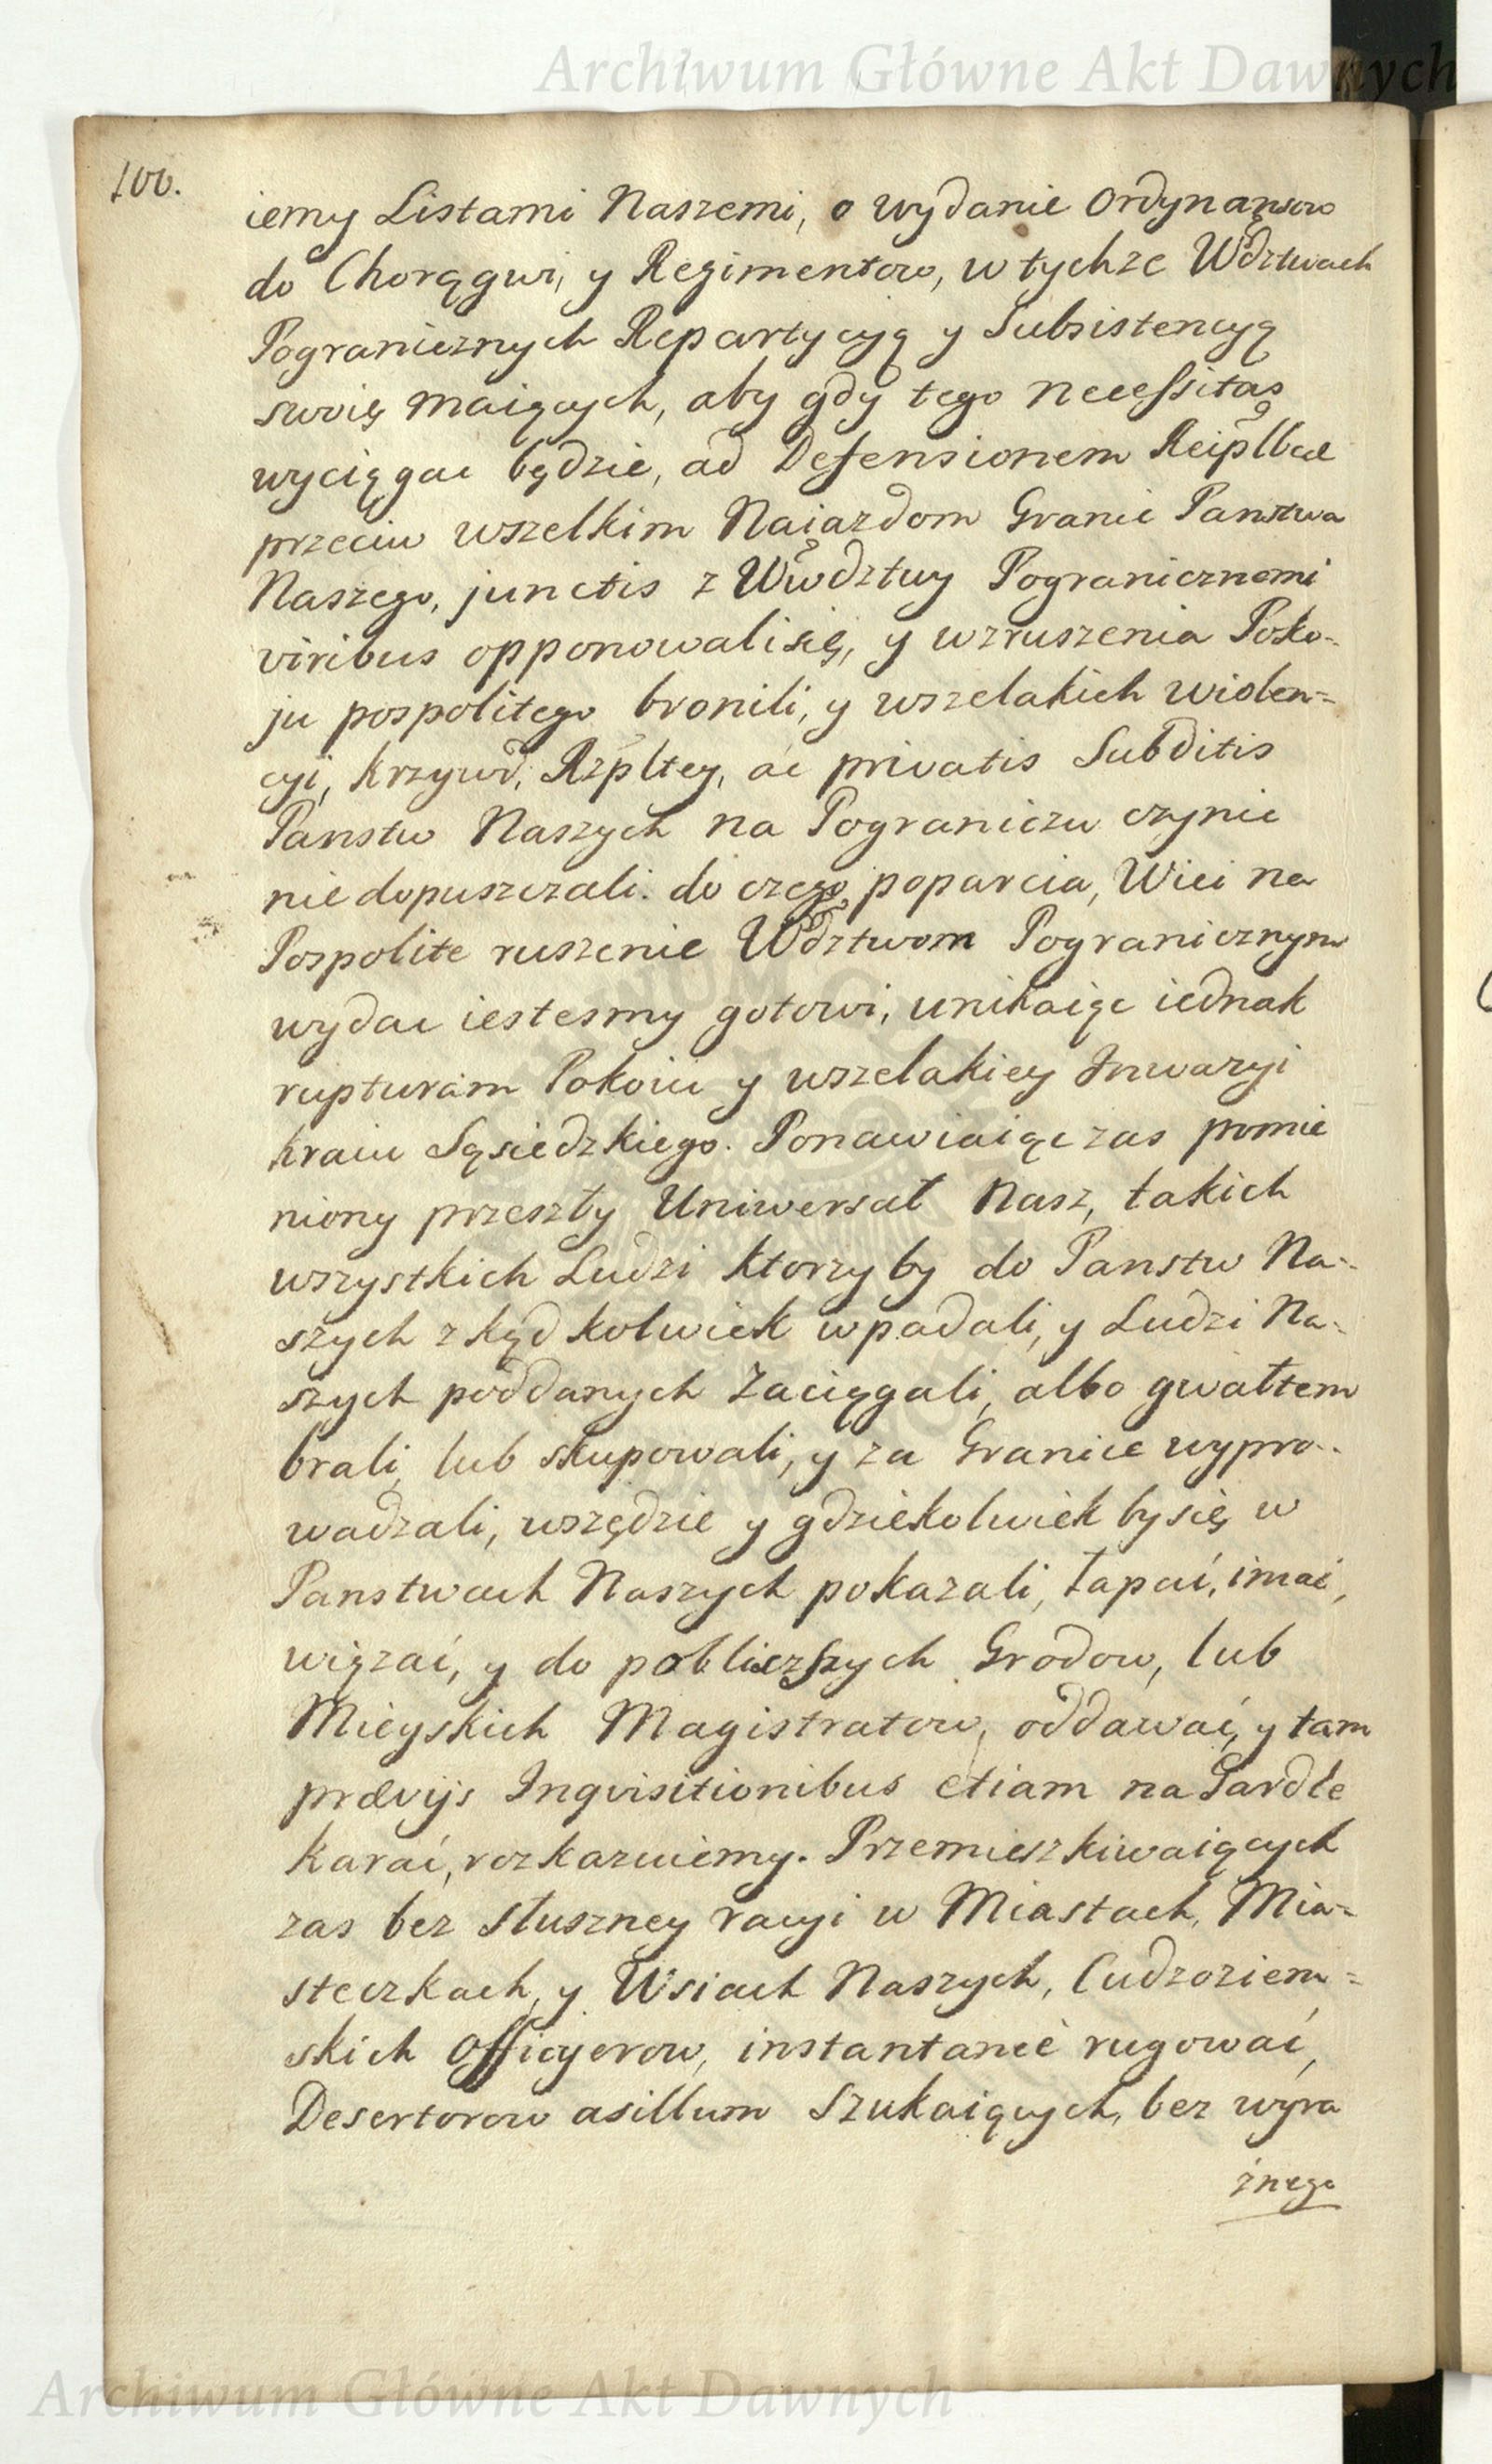 Archiwum Główne Akt Dawnych
100.
iemy Listami Naszemi, o wydanie Ordynansow
do Chorągwi, y Regimentow, w tychze Wdztwach
Pogranicznych Repartycyą y Subsistencyą
swoię maiących, aby gdy tego necessitas
wyciągac będzie, ad Defensionem Reiplbcæ
przeciw wszelkim Naiazdom Granic Panstwa
Naszego, junctis z Wwdztwy Pogranicznemi
viribus opponowali się, y wzruszenia Poko-
ju pospolitego bronili, y wszelakich wiolen=
cyi, krzywd, Rzpltey, ac privatis Subditis
Panstw Naszych na Pograniczu czynic
nie dopuszczali. do czego poparcia, Wici na
Pospolite ruszenie Wdztwom Pogranicznym
wydac iestesmy gotowi, unikaiąc iednak
rupturam Pokoiu y wszelakiey Inwazyi
kraiu Sąsiedzkiego. Ponawiaiąc zas pomie
niony przeszły Uniwersał Nasz, takich
wszystkich Ludzi ktorzy by do Panstw Na-
szych z kąd kolwiek wpadali, y Ludzi Na-
szych poddanych zaciągali, albo gwałtem
brali, lub skupowali, y za Granice wypro-
wadzali, wszędzie y gdziekolwiek by się w
Panstwach Naszych pokazali, łapać, imać,
wiązać, y do pobliższych Grodow, lub
Mieyskich Magistratow, oddawać, y tam
prævijs Inqvisitionibus etiam na Gardle
karać, rozkazuiemy. Przemieszkiwaiących
zas bez słuszney racyi w Miastach, Mia=
steczkach, y Wsiach Naszych, Cudzoziem=
skich Officyerow, instantanee rugować,
Desertorow asillum szukaiących, bez wyra
źnego
Archiwum Główne Akt Dawnych